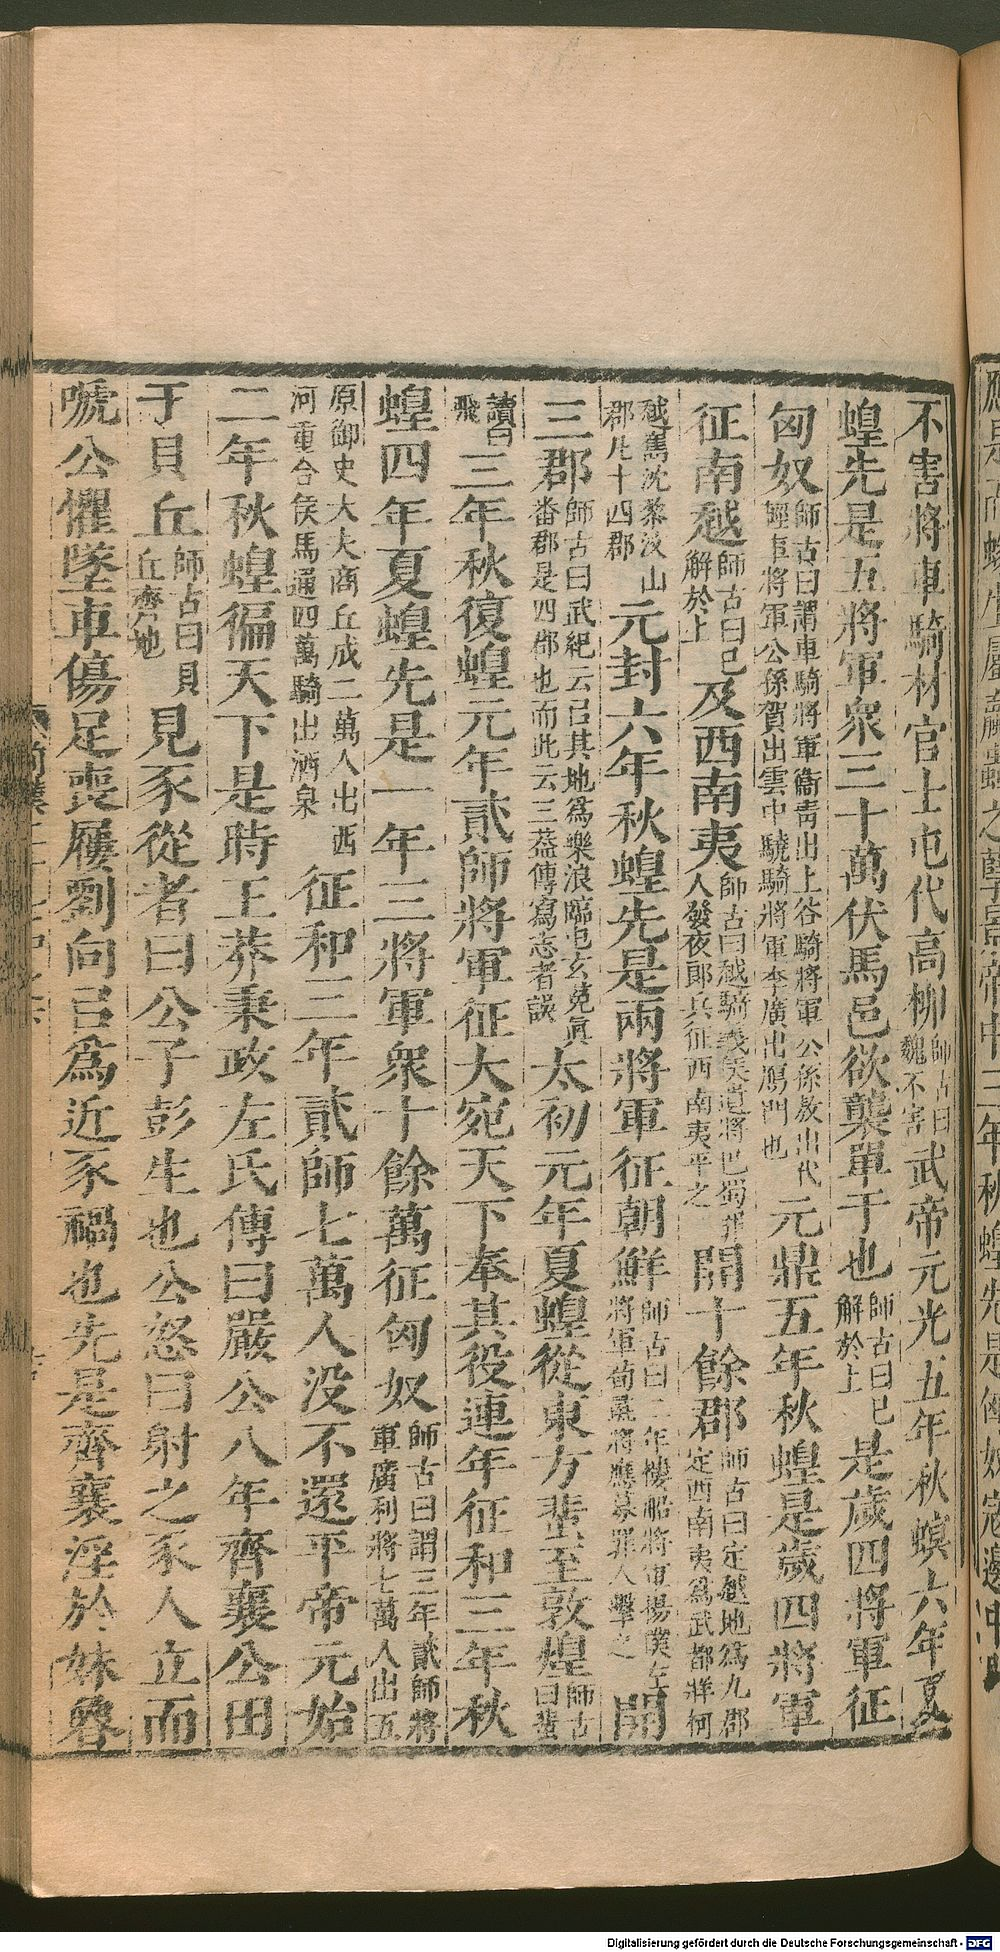 不害將車騎材官士屯代高柳師古曰魏不害武帝元光五年秋螟六年夏
蝗先是五將軍衆三十萬伏馬邑欲襲單于也師古曰已解於上是歲四將軍征
匈奴師古曰謂車騎將軍衞青出上谷騎將軍公孫敖出代輕車將軍公孫賀出雲中驍騎將軍李廣出鴈門也元鼎五年秋蝗是歲四將軍
征南越師古曰已解於上及西南夷師古曰越騎義侯遺將巴蜀罪人發夜郞兵征西南夷平之開十餘郡師古曰定越地爲九郡定西南夷爲武都牂柯
越嶲沈黎汶山郡凡十四郡元封六年秋蝗先是兩將軍征朝鮮師古曰二年樓船將軍楊僕左將軍荀彘將應募罪人擊之開
三郡師古曰武紀云㠯其地爲樂浪臨屯玄菟眞番郡是四郡也而此云三葢傳寫志者誤太初元年夏蝗從東方蜚至敦煌師古曰蜚
讀曰飛三年秋復蝗元年貳師將軍征大宛天下奉其役連年征和三年秋
蝗四年夏蝗先是一年三將軍衆十餘萬征匈奴師古曰謂三年貳師將軍廣利將七萬人出五
原御史大夫商丘成二萬人出西河重合侯馬通四萬騎出酒泉征和三年貳師七萬人没不還平帝元始
二年秋蝗徧天下是時王莽秉政左氏傳曰嚴公八年齊襄公田
于貝丘師古曰貝丘齊地見豕從者曰公子彭生也公怒曰射之豕人立而
嗁公懼墜車傷足喪屨劉向㠯爲近豕禍也先是齊襄淫於妹魯
Digitalisierung gefördert durch die Deutsche Forschungsgemeinschaft - DFG